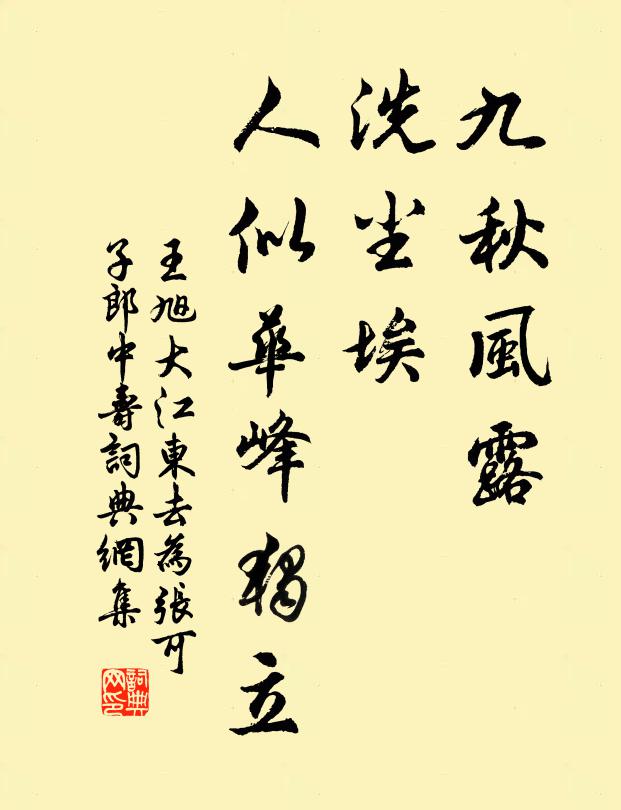 九秋風露
洗尘埃
人似華峰獨立
王旭大江東去為張可
子郎中壽詞典網集
詞典网印